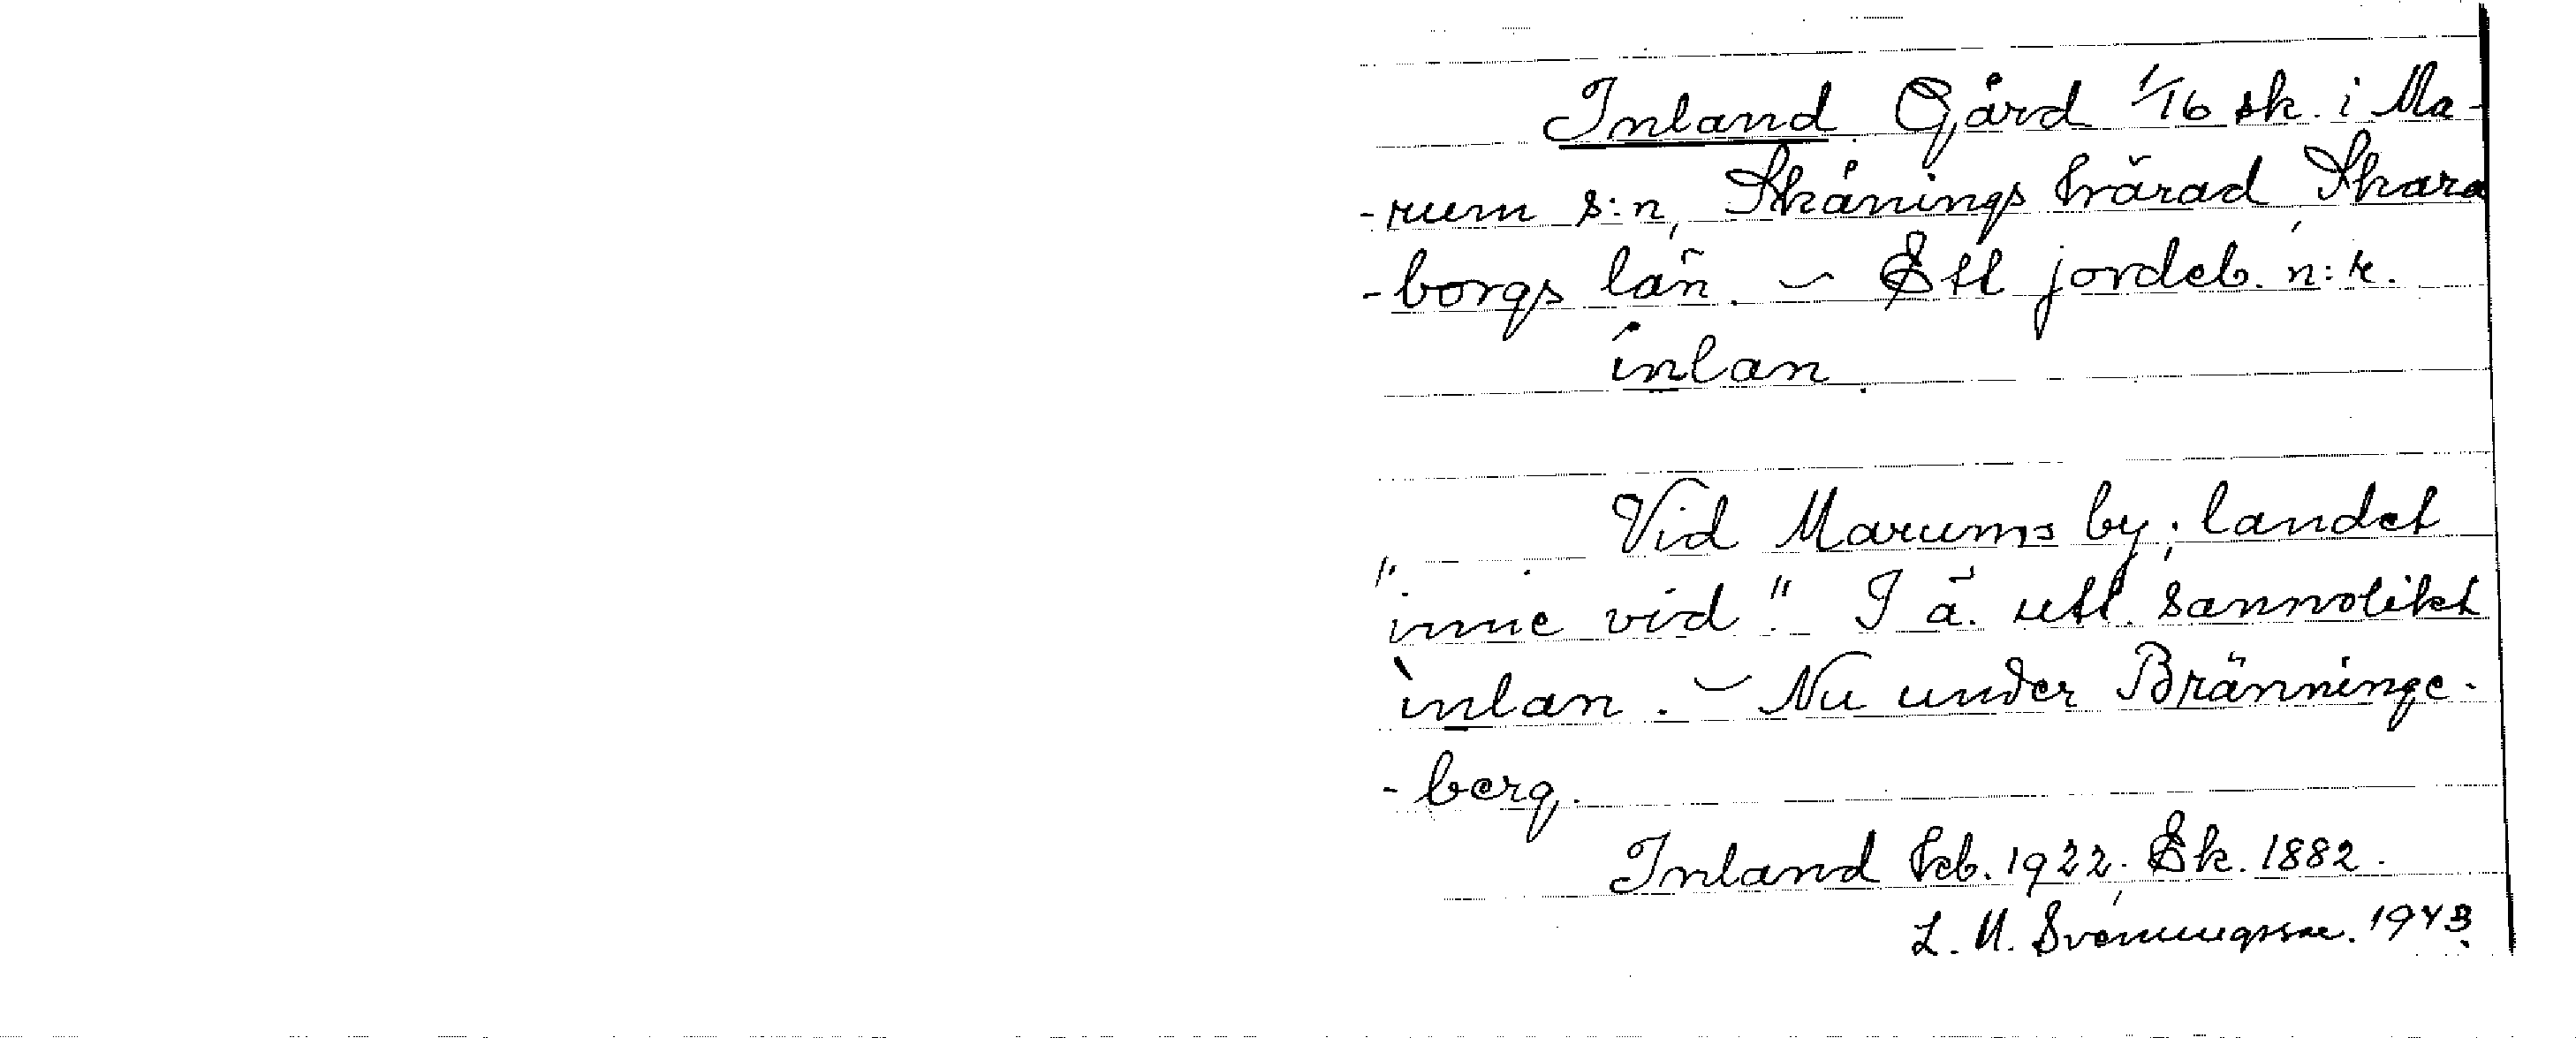 Inland Gård 1/16 sk. i Ma-
-rum s:n, Skånings härad, Skara
-borgs län. – Ett jordeb. n:r.
ínlan.
Vid Marums by; landet
"inne vid". I ä. utt. sannolikt
ìnlan. – Nu under Bränninge-
-berg.
Inland kb. 1922; Ek. 1882.
L. M. Svenungsson. 1943.